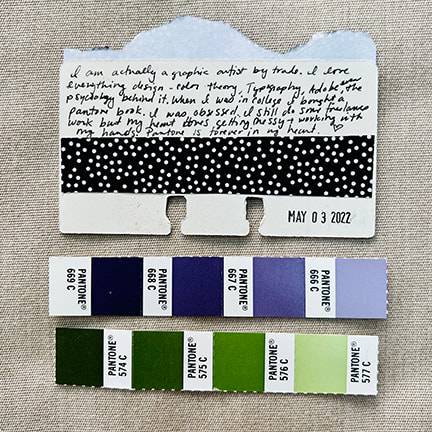 I am actually a graphic artist by trade. I love
everything design - color theory, Typography, Adobe, even the
psychology behind it. When I was in college I bought a
Pantone book. I was obsessed. I still do some freelance
work but my heart loves getting messy + working with
my hands. Pantone is forever in my heart. ♡
MAY 03 2022
PANTONE® 669 C
PANTONE® 668 C
PANTONE® 667 C
PANTONE® 666 C
PANTONE® 574 C
PANTONE® 575 C
PANTONE® 576 C
PANTONE® 577 C